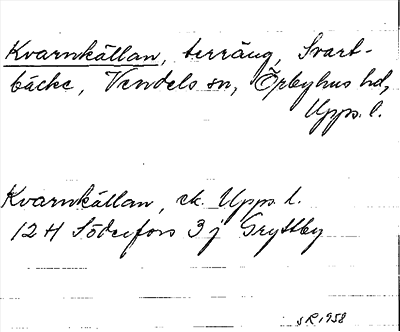 Kvarnkällan, terräng, Svart-
bäcke, Vendels sn, Örbyhus hd,
Upps. l.
Kvarnkällan, ek. Upps l.
12 H Söderfors 3 j Gryttby
SR 1958